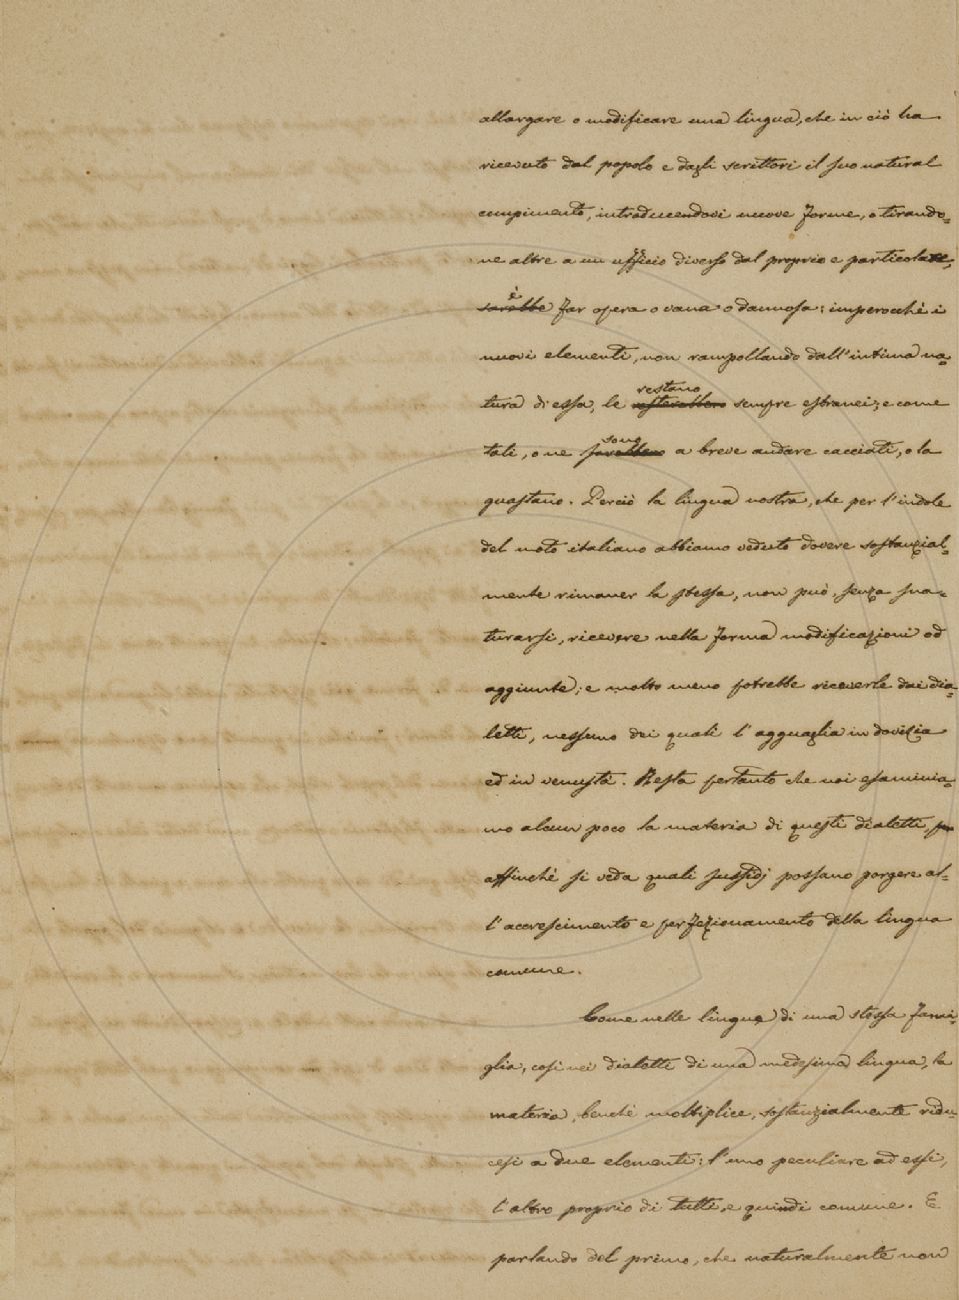 allargare o modificare una lingua, che in ciò ha
ricevuto dal popolo e dagli scrittori il suo natural
compimento, introducendovi nuove forme, o tirando-
ne altre a un ufficio diverso dal proprio e particolare,
è
sarebbe far opera o vana o dannosa: imperocchè i
nuovi elementi, non rampollando dall'intima na-
restano
tura di essa, le resterebbero sempre estranei; e come
sono
tali, o ne sarebbero a breve andare cacciati, o la
guastano. Perciò la lingua nostra, che per l'indole
del moto italiano abbiamo veduto dovere sostanzial-
mente rimaner la stessa, non può, senza sna-
turarsi, ricevere nella forma modificazioni od
aggiunte; e molto meno potrebbe riceverle dai dia-
letti, nessuno dei quali l'agguaglia in dovizia
ed in venustà. Resta pertanto che noi esaminia-
mo alcun poco la materia di questi dialetti,
affinchè si veda quali sussidj possano porgere al-
l'accrescimento e perfezionamento della lingua
comune.
Come nelle lingue di una stessa fami-
glia, così nei dialetti di una medesima lingua, la
materia, benchè moltiplice, sostanzialmente ridu-
cesi a due elementi: l'uno peculiare ad essi,
l'altro proprio di tutti, e quindi comune. E
parlando del primo, che naturalmente non